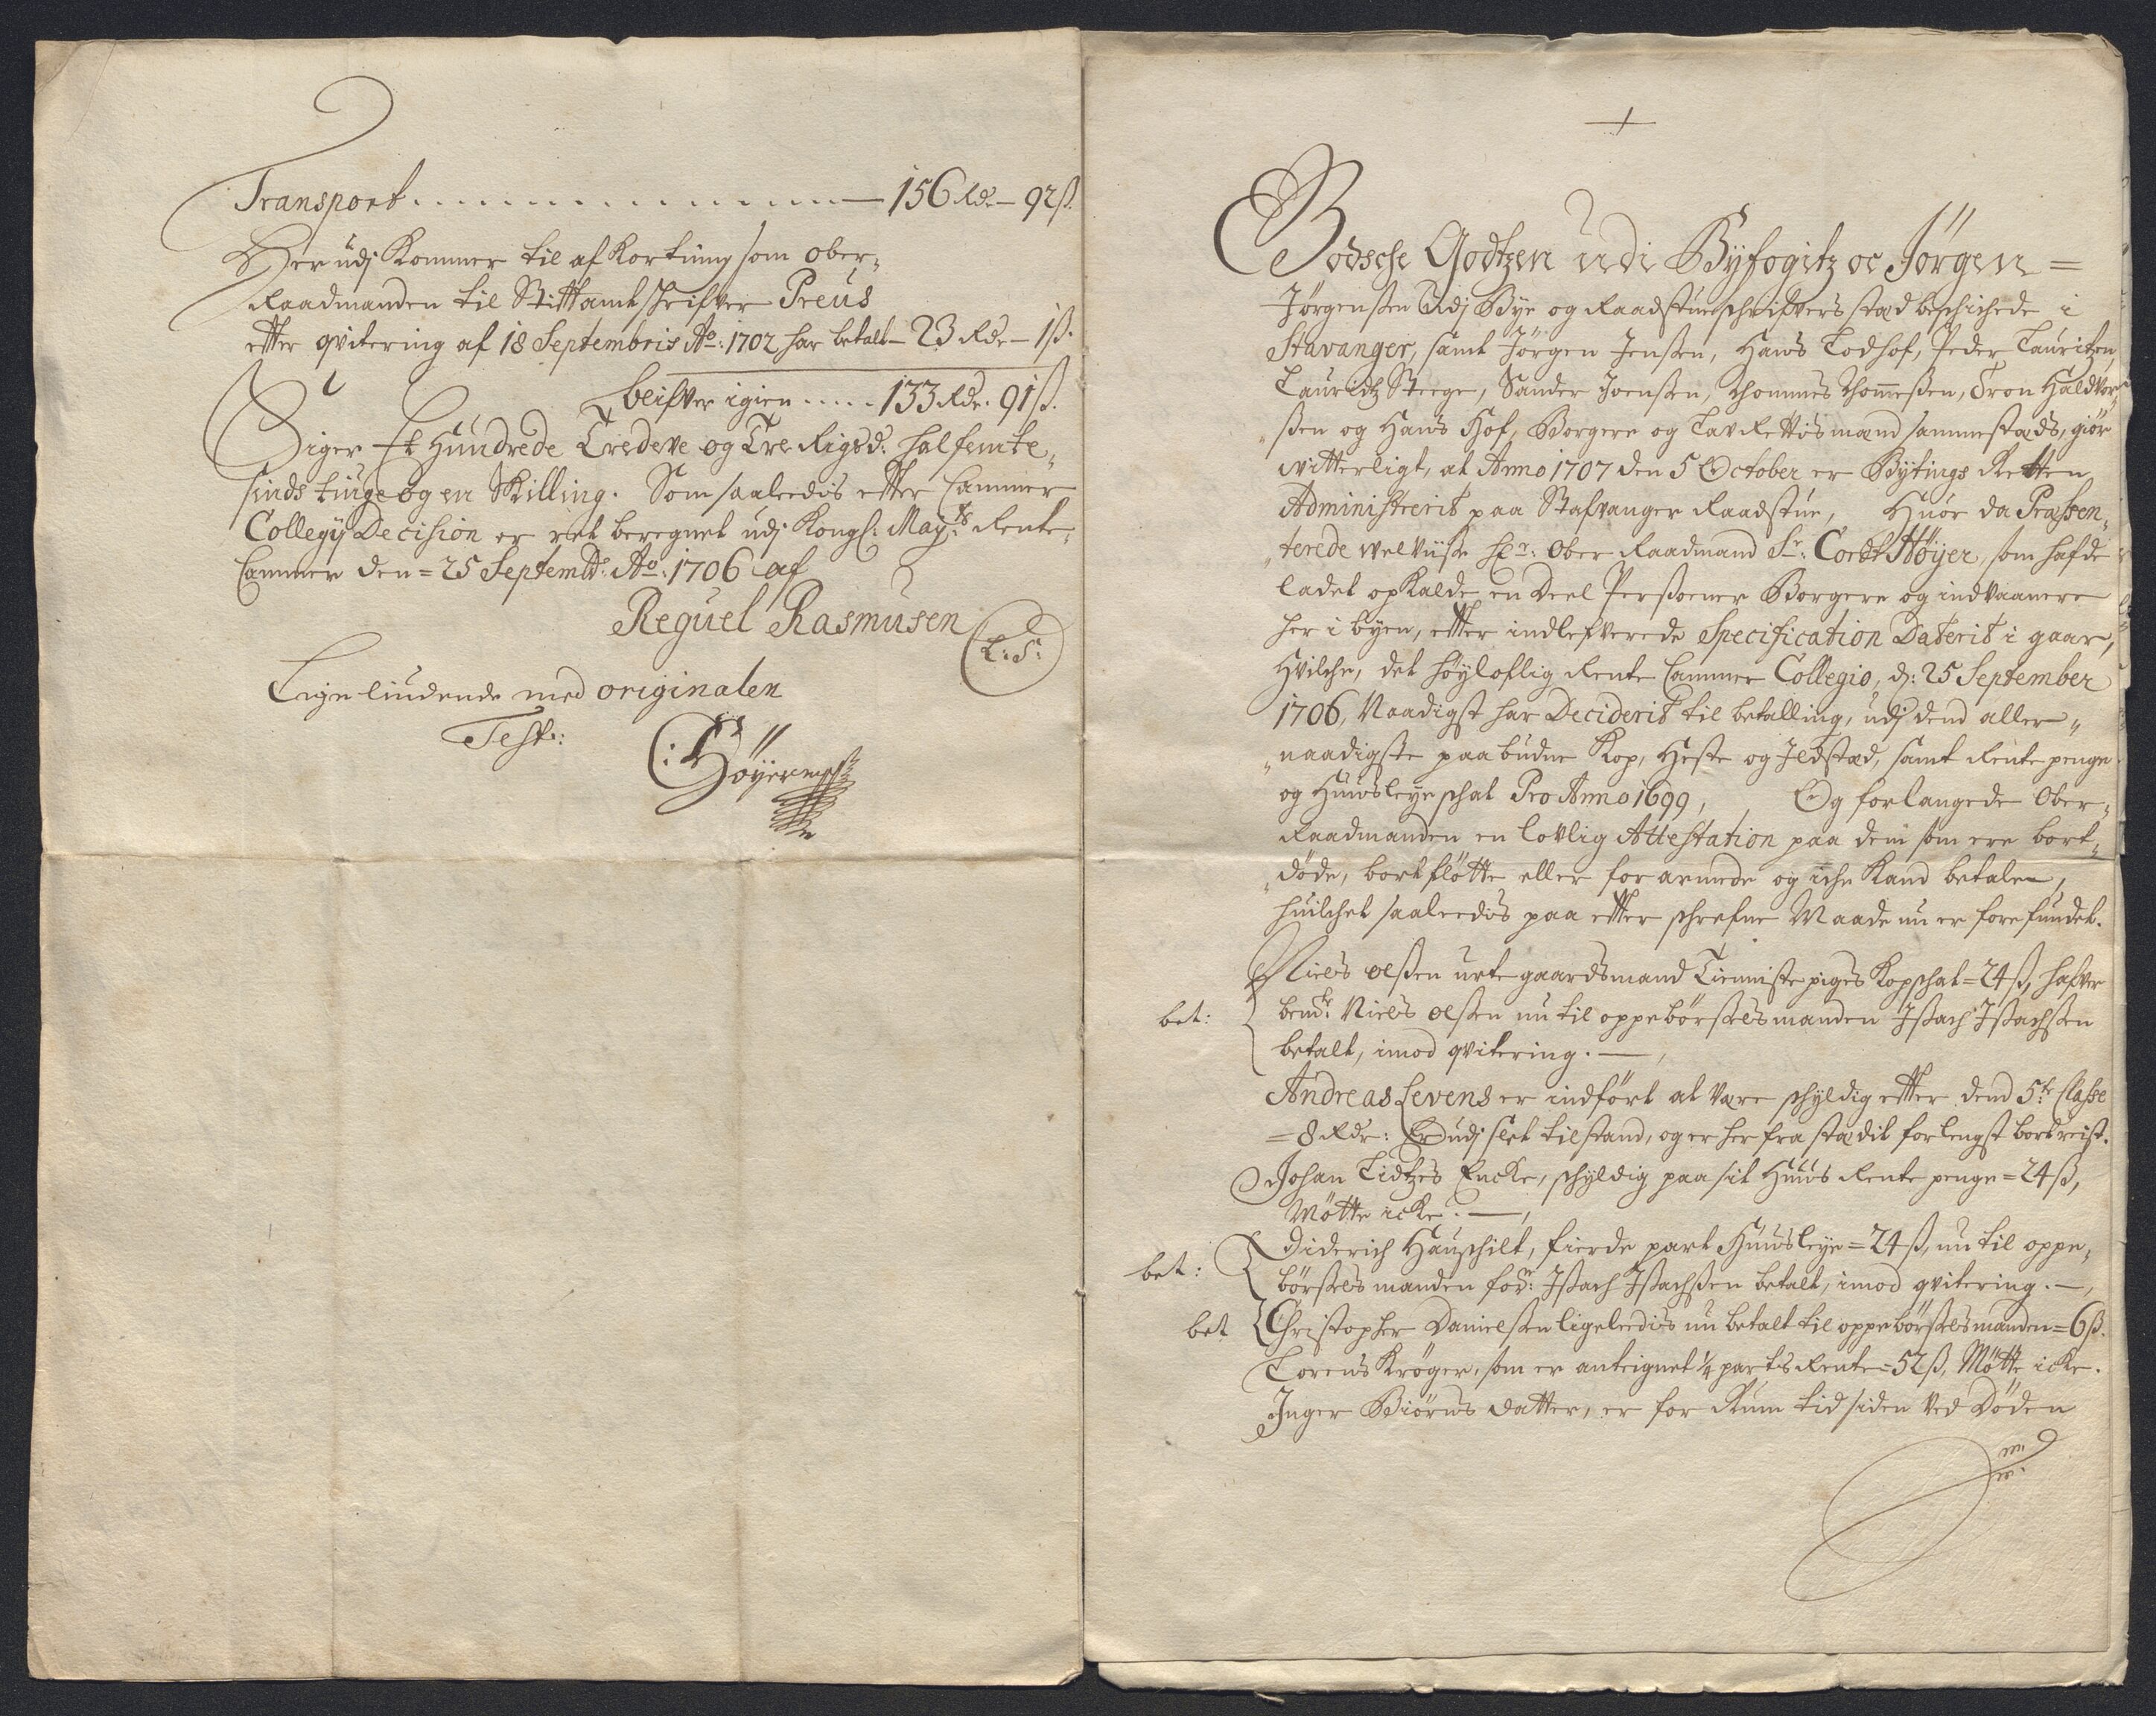 Transport . . . . . . . . . . . . . . — 156 Rdr — 92 ß.
Her udj Kommer til afKortning som ober-
Raadmanden til Stiftamtschrifver Preus
efter qvitering af 18 Septembris Ao: 1702 har betalt — 23 Rdr — 1 ß.
bleifver igien . . . . . 133 Rdr. 91 ß.
Siger Et Hundrede Tredeve og Tre Rigsd: halfemte-
sinds tiuge og en Skilling. Som saaleedis efter Cammer
Collegij Decision er ret beregnet udj Kongl: Mayts Rente-
Cammer den = 25 Septembr: Ao: 1706 af
Reguel Rasmusen
L: S:
Lige liudende med originalen
Test:
C: Höyer mpr
+
Bodsche Godtzen udi Byfogitz oc Jörgen =
Jörgensen Udj Bye og Raadstueschrifvers stæd beschichede i
Stavanger, samt Jörgen Jensen, Hans Todhof, Peder Lauritzen
Lauridtz Steege, Sander Joensen, Thommes Thommesen, Tron Haldvor-
sen og Hans Hof, Borgere og LavRettismænd sammestæds, giör
vitterligt, at Anno 1707 den 5 October er Bytings Retten
Administrerit paa Stafvanger Raadstue, Huor da Præsen-
terede welviise Hr: Ober Raadmand Sr: Cordt Höyer, som hafde
ladet opKalde en Deel Persoener Borgere og indvaanere
her i byen, efter indlefverede Specification Daterit i gaar,
Hvilche, det höyloflig Rente Cammer Collegio, d: 25 September
1706, Naadigst har Deciderit til betalling, udj dend aller-
naadigste paabudne Kop, Heste og Ildstæd, samt Rente penge
og Huusleyeschat Pro Anno 1699, Og forlangede Ober-
Raadmanden en lovlig Attestation paa dem som ere bort-
döde, bortflötte eller forarmede og iche Kand betale,
huilchet saaleedis paa efterschrefne Maade nu er forefundet.
Niels olsen urtegaardsmand Tienniste piges Kopschat = 24 ß, hafver
bet: bemte Niels olsen nu til oppebörselsmanden Isach Isachsen
betalt, imod qvitering. —
Andreas Levens er indfört at være schyldig efter dend 5te Classe
= 8 Rdr: Er udj slet tilstand, og er her fra stædit forlengst bortreist.
Johan Tidtzes Encke, schyldig paa sit Huus Rente penge = 24 ß,
Mötte icke. —
Diderich Hauschilt, fierde part Huusleye = 24 ß, nu til oppe-
bet: börselsmanden forn: Isach Isachsen betalt, imod qvitering. —
bet Christopher Danielsen ligeleedis nu betalt til oppebörselsmanden = 6 ß.
Lorens Kröger, som er anteignet 1/4 parts Rente = 52 ß, Mötte icke.
Inger Biörns datter, er for Rum tid siden ved Döden